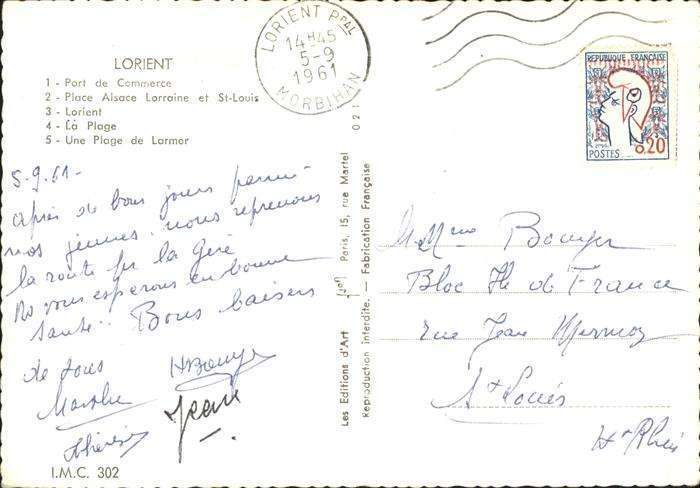 LORIENT
1 - Port de Commerce
2 - Place Alsace Lorraine et St-Louis
3 - Lorient
4 - La Plage
5 - Une Plage de Larmor
5.9.61-
après de bons jours parmi
nos jeunes. nous reprenons
la route pr la
Ns vous esperons en bonne
santé.. Bons baisers
de tous
Marthe
Thérèse
Jean
I.M.C. 302
LORIENT Ppal
14H45
5-9
1961
MORBIHAN
021
Les Editions d'Art (Jos) Paris, 15, rue Martel
Reproduction interdite. - Fabrication Française
REPUBLIQUE FRANÇAISE
0,20
POSTES
M. Mme
Bloc Ile de France
rue Jean Mermoz
St Louis
Ht Rhin